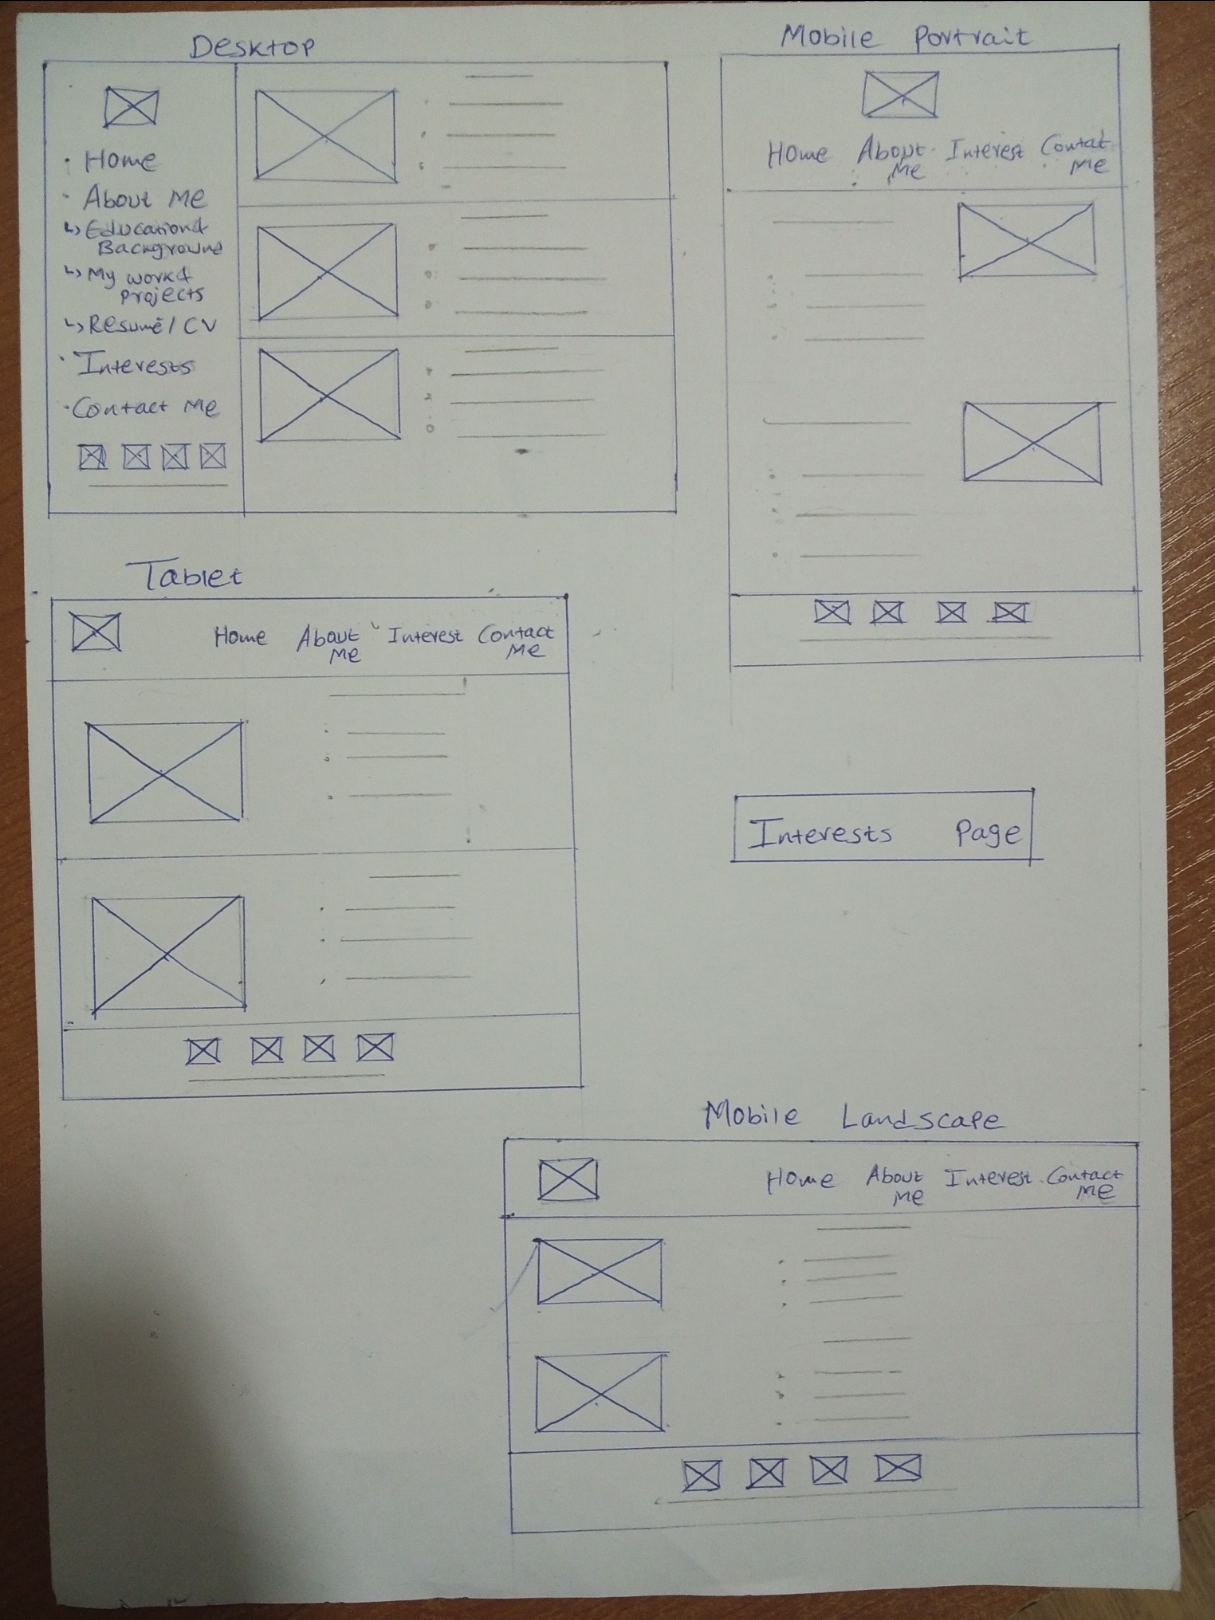 Desktop
· Home
· About Me
↳ Education &
Background
↳ My work &
projects
↳ Resumé / CV
· Interests
· Contact Me
Mobile Portrait
Home About Interest Contact
Me Me
Tablet
Home About Interest Contact
Me Me
Interests Page
Mobile Landscape
Home About Interest Contact
Me Me